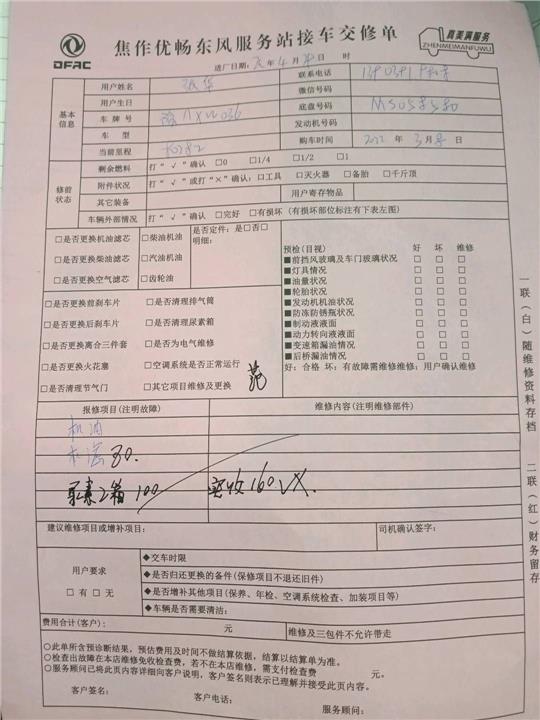 DFAC
焦作优畅东风服务站接车交修单
真美满服务
ZHENMEIMANFUWU
进厂日期: 年 4 月 日 时
基本信息
用户姓名
联系电话
用户生日
微信号码
车牌号
底盘号码
车型
发动机号码
当前里程
购车时间 年 3月 日
修前状态
剩余燃料 打“√”确认 □0 □1/4 □1/2 □1
附件状况 打“√”或打“×”确认:□工具 □灭火器 □备胎 □千斤顶
其它装备 用户寄存物品
车辆外部情况 打“√”确认 □完好 □有损坏(有损坏部位标注有下表左图)
□是否更换机油滤芯 □柴油机油
□是否更换柴油滤芯 □汽油机油
□是否更换空气滤芯 □齿轮油
是否定件:是□否□
明细:
□是否更换前刹车片 □是否清理排气筒
□是否更换后刹车片 □是否清理尿素箱
□是否更换离合三件套 □是否为电气维修
□是否更换火花塞 □空调系统是否正常运行
□是否清理节气门 □其它项目维修及更换
预检(目视) 好 坏 维修
■前挡风玻璃及车门玻璃状况 □ □ □
■灯具情况 □ □ □
■油量状况 □ □ □
■轮胎状况 □ □ □
■发动机机油状况 □ □ □
■防冻防锈瓶状况 □ □ □
■制动液液面 □ □ □
■动力转向液液面 □ □ □
■变速箱漏油情况 □ □ □
■后桥漏油情况 □ □ □
好:合格 坏:有故障需维修维修:用户确认维修
报修项目(注明故障) 维修内容(注明维修部件)
机油
机滤 80.
尿素2箱 100 实收160 VX.
建议维修项目或增补项目: 司机确认签字:
用户要求
□有 □无
◆交车时限
◆是否归还更换的备件(保修项目不退还旧件)
◆是否增补其他项目(保养、年检、空调系统检查、加装项目等)
◆车辆是否需要清洁:
费用合计(客户): 元 维修及三包件不允许带走
○此单所含预诊断结果,预估费用及时间不做结算依据,结算以结算单为准。
○检查出故障在本店维修免收检查费,若不在本店维修,需支付检查费 元。
○服务顾问已将此页内容详细向客户说明,客户签名则表示已理解并接受此页内容。
客户签名: 客户电话: 服务顾问:
一联(白)随维修资料存档 二联(红)财务留存